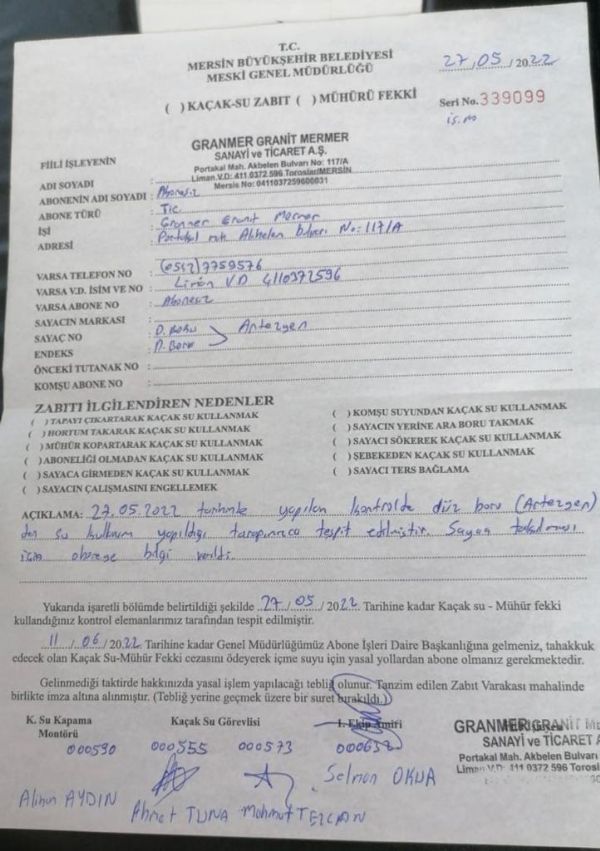 T.C.
MERSİN BÜYÜKŞEHİR BELEDİYESİ
MESKİ GENEL MÜDÜRLÜĞÜ
27/05/2022
( ) KAÇAK-SU ZABIT ( ) MÜHÜRÜ FEKKİ
Seri No. 339099
iş.no
GRANMER GRANİT MERMER
SANAYİ ve TİCARET A.Ş.
Portakal Mah. Akbelen Bulvarı No: 117/A
Liman V.D: 411 0372 596 Toroslar/MERSİN
Mersis No: 0411037259600031
FİİLİ İŞLEYENİN
ADI SOYADI :
ABONENİN ADI SOYADI : Abonesiz
ABONE TÜRÜ : Tic
İŞİ : Granmer Granit Mermer
ADRESİ : Portakal mh Akbelen bulvarı No: 117/A
VARSA TELEFON NO : (0542) 7759576
VARSA V.D. İSİM VE NO : Liman V.D 4110372596
VARSA ABONE NO : Abonesiz
SAYACIN MARKASI : D. Boru Artezyen
SAYAÇ NO : D. Boru
ENDEKS :
ÖNCEKİ TUTANAK NO :
KOMŞU ABONE NO :
ZABITI İLGİLENDİREN NEDENLER
( ) TAPAYI ÇIKARTARAK KAÇAK SU KULLANMAK
( ) HORTUM TAKARAK KAÇAK SU KULLANMAK
( ) MÜHÜR KOPARTARAK KAÇAK SU KULLANMAK
( ) ABONELİĞİ OLMADAN KAÇAK SU KULLANMAK
( ) SAYACA GİRMEDEN KAÇAK SU KULLANMAK
( ) SAYACIN ÇALIŞMASINI ENGELLEMEK
( ) KOMŞU SUYUNDAN KAÇAK SU KULLANMAK
( ) SAYACIN YERİNE ARA BORU TAKMAK
( ) SAYACI SÖKEREK KAÇAK SU KULLANMAK
( ) ŞEBEKEDEN KAÇAK SU KULLANMAK
( ) SAYACI TERS BAĞLAMA
AÇIKLAMA: 27.05.2022 tarihinde yapılan kontrolde düz boru (Artezyen)
den su kullanım yapıldığı tarafımızca tespit edilmiştir. Sayaç takılması
için aboneye bilgi verildi.
Yukarıda işaretli bölümde belirtildiği şekilde 27/05/2022 Tarihine kadar Kaçak su - Mühür fekki
kullandığınız kontrol elemanlarımız tarafından tespit edilmiştir.
11/06/2022 Tarihine kadar Genel Müdürlüğümüz Abone İşleri Daire Başkanlığına gelmeniz, tahakkuk
edecek olan Kaçak Su-Mühür Fekki cezasını ödeyerek içme suyu için yasal yollardan abone olmanız gerekmektedir.
Gelinmediği taktirde hakkınızda yasal işlem yapılacağı tebliğ olunur. Tanzim edilen Zabıt Varakası mahalinde
birlikte imza altına alınmıştır. (Tebliğ yerine geçmek üzere bir suret bırakıldı.)
K. Su Kapama
Montörü
Kaçak Su Görevlisi
İ. Ekip Amiri
000590 000555 000573 000632
Alihan AYDIN
Ahmet TUNA
Mahmut TEZCAN
Selman OKUA
GRANMER GRANİT ME
SANAYİ ve TİCARET A
Portakal Mah. Akbelen Bulvarı
Liman V.D: 411 0372 596 Toros